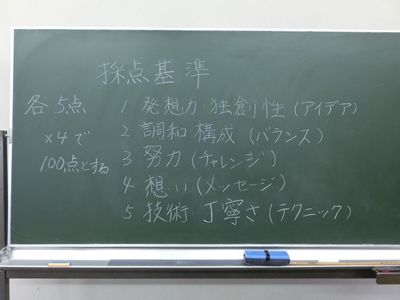 採点基準
各5点
×4で
100点とする
1 発想力・独創性(アイデア)
2 調和 構成(バランス)
3 努力(チャレンジ)
4 想い(メッセージ)
5 技術・丁寧さ(テクニック)